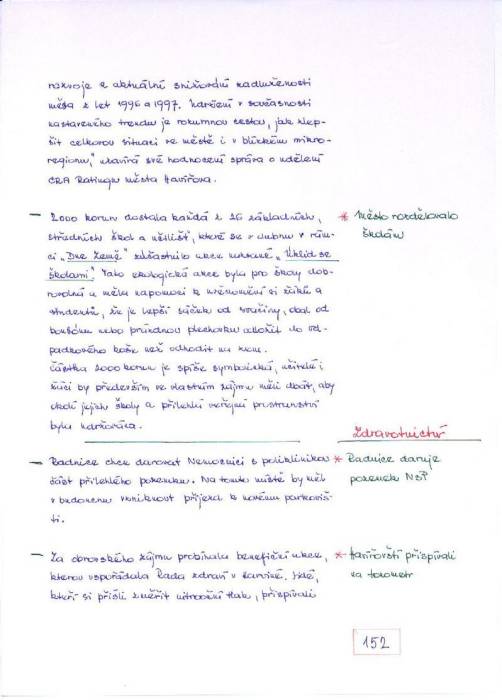 rozvoje a aktuální snižování zadluženosti
města z let 1996 a 1997. Navození v současnosti
nastaveného trendu je rozumnou cestou, jak zlep-
šit celkovou situaci ve městě i v blízkém mikro-
regionu," uzavírá své hodnocení správa o udělení
CRA Ratingu města Havířova.
– 2000 korun dostala každá z 26 základních,
* Město rozdělovalo
středních škol a učilišť, které se v dubnu v rám-
školám
ci „Dne Země" zúčastnilo akce nazvané „Úklid se
školami". Tato ekologická akce byla pro školy dob-
rovolná a měla napomoci k uvědomění si žáků a
studentů, že je lepší sáček od svačiny, obal od
bonbónu nebo prázdnou plechovku odložit do od-
padkového koše než odhodit na zem.
Částka 2000 korun je spíše symbolická, učitelé i
žáci by především ve vlastním zájmu měli dbát, aby
okolí jejich školy a přilehlá veřejná prostranství
byla udržována.
Zdravotnictví
– Radnice chce darovat Nemocnici s poliklinikou
* Radnice daruje
část přilehlého pozemku. Na tomto místě by měl
pozemek NsP
v budoucnu vzniknout příjezd k novému parkoviš-
ti.
– Za obrovského zájmu probíhala benefiční akce,
* Havířovští přispívali
kterou uspořádala Rada zdraví v Karviné. Lidé,
na tonometr
kteří si přišli změřit nitrooční tlak, přispívali
152